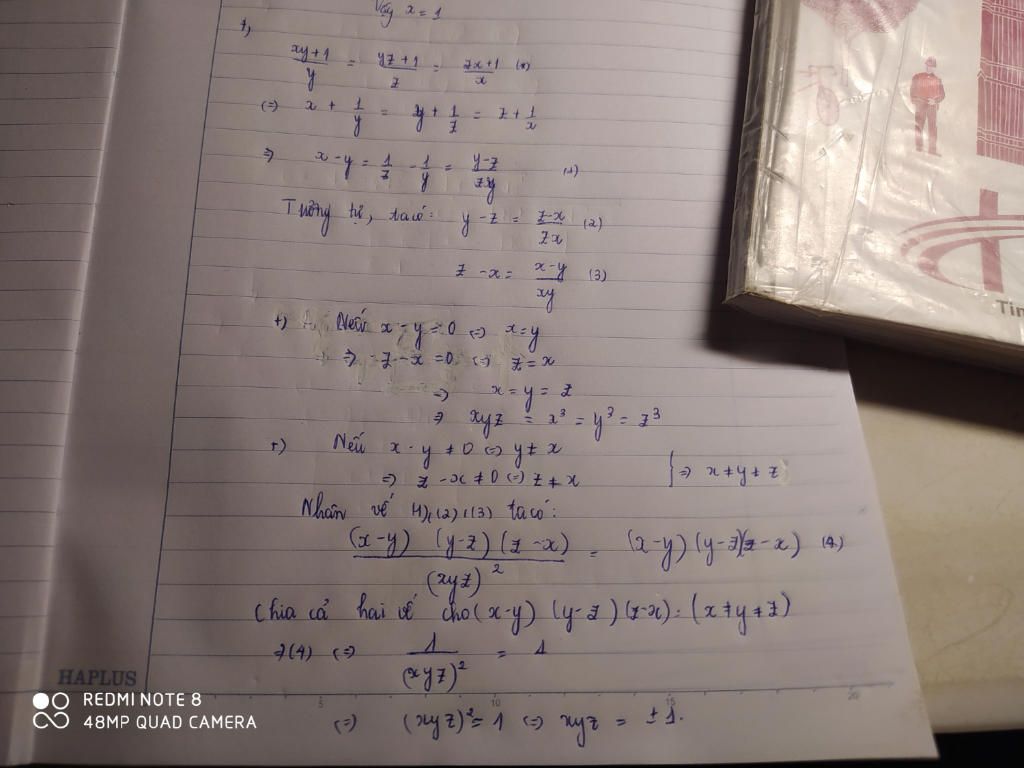 Vậy x = 1
xy+1/y = yz+1/z = zx+1/x (*)
(=) x + 1/y = y + 1/z = z + 1/x
=> x - y = 1/z - 1/y = y-z/zy (1)
Tương tự, ta có: y - z = z-x/zx (2)
z - x = x-y/xy (3)
+) Nếu x - y = 0 (=) x = y
=> z - x = 0 (=) z = x
=> x = y = z
=> xyz = x³ = y³ = z³
+) Nếu x - y ≠ 0 (=) y ≠ x
=> z - x ≠ 0 (=) z ≠ x } => x ≠ y ≠ z
Nhân vế (1), (2), (3) ta có:
(x-y) (y-z) (z-x)/(xyz)² = (x-y) (y-z)(z-x) (4)
Chia cả hai vế cho (x-y) (y-z) (z-x): (x ≠ y ≠ z)
=> (4) (=) 1/(xyz)² = 1
(=) (xyz)² = 1 (=) xyz = ±1.
HAPLUS
5 10 15 20
REDMI NOTE 8
48MP QUAD CAMERA
Tin